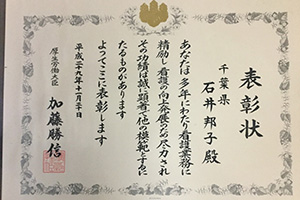 表彰状
千葉県
石井邦子殿
あなたは多年にわたり看護業務に
精励し看護の向上発展のため尽力され
その功績は誠に顕著で他の模範とするに
たるものがあります
よってここに表彰します
平成二十九年十一月二十日
厚生労働大臣
加藤勝信